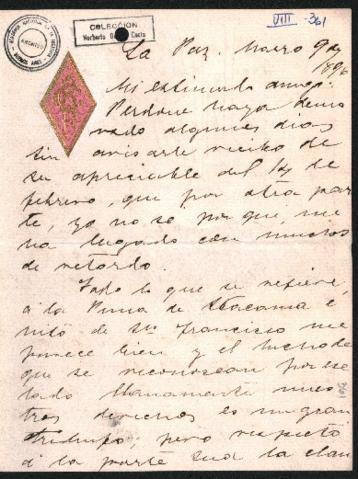 COLECCION
Norberto
VIII -361
ARCHIVO
BUENOS AIRES
La Paz. Marzo 9 de
1896
Mi estimado amigo:
Perdone haya demo
rado algunos dias
sin avisarle recibo de
su apreciable del 14 de
febrero, que por otra par
te, yo no sé por que, me
ha llegado con muchos
de retardo.
Todo lo que se refiere,
á la Puna de Atacama é
hito de Sn Francisco me
parece bien y el hecho de
que se reconozcan por ese
lado llanamente nues
tros derechos es un gran
triunfo; pero respecto
á la parte sud la clau